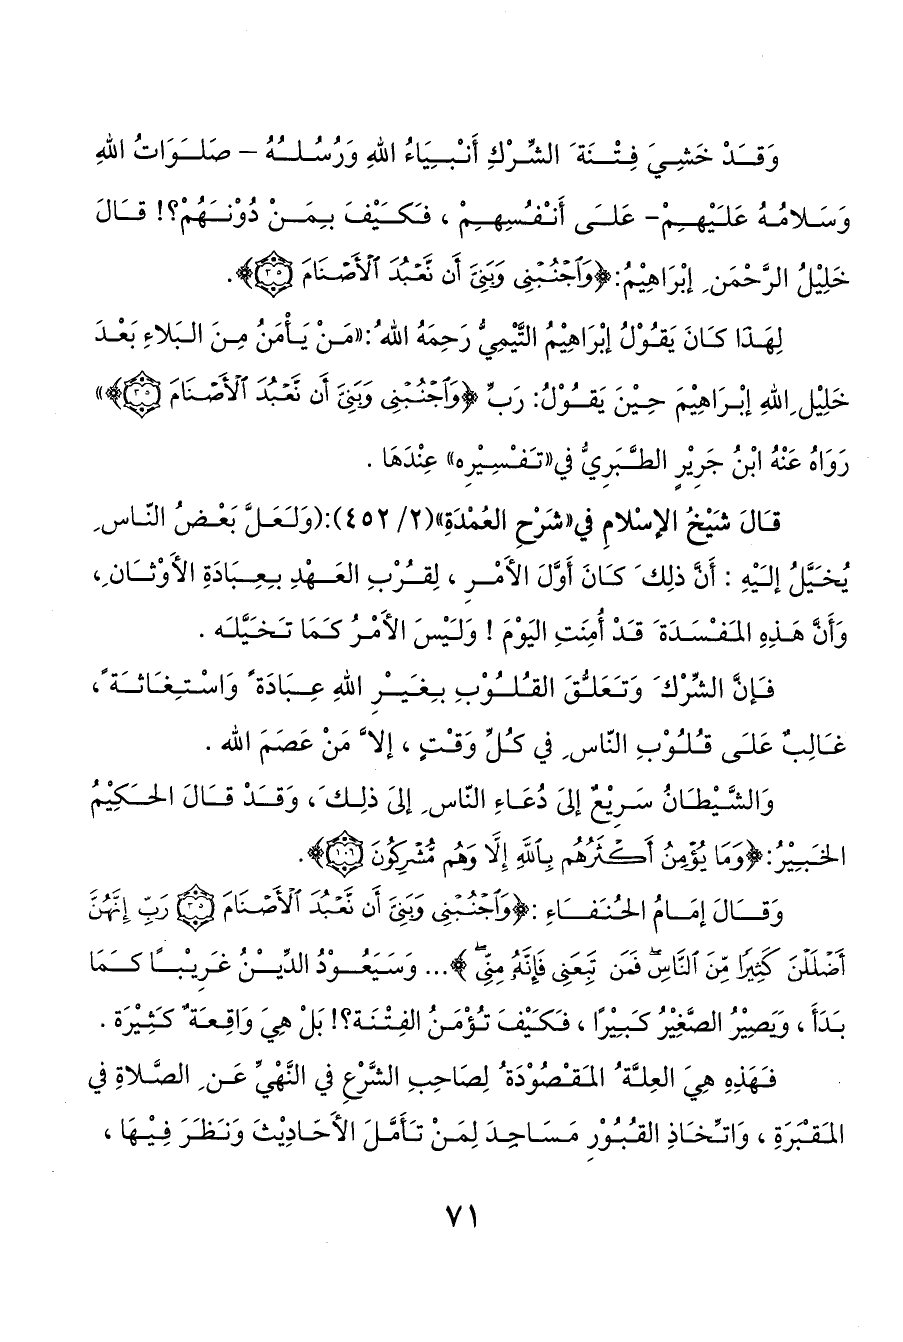 وَقَدْ خَشِيَ فِتْنَةَ الشِّرْكِ أَنْبِيَاءُ اللهِ وَرُسُلُهُ – صَلَوَاتُ اللهِ
وَسَلامُهُ عَلَيْهِمْ– عَلَى أَنْفُسِهِمْ ، فَكَيْفَ بِمَنْ دُوْنَهُمْ؟! قَالَ
خَلِيْلُ الرَّحْمَنِ إِبْرَاهِيْمُ: ﴿وَٱجْنُبْنِى وَبَنِىَّ أَن نَّعْبُدَ ٱلْأَصْنَامَ ٣٥﴾.
لِهَذَا كَانَ يَقُوْلُ إِبْرَاهِيْمُ التَّيْمِيُّ رَحِمَهُ اللهُ: «مَنْ يَأْمَنُ مِنَ البَلاءِ بَعْدَ
خَلِيْلِ اللهِ إِبْرَاهِيْمَ حِيْنَ يَقُوْلُ: رَبِّ ﴿وَٱجْنُبْنِى وَبَنِىَّ أَن نَّعْبُدَ ٱلْأَصْنَامَ ٣٥﴾»
رَوَاهُ عَنْهُ ابْنُ جَرِيْرٍ الطَّبَرِيُّ فِي «تَفْسِيْرِه» عِنْدَهَا .
قَالَ شَيْخُ الإِسْلامِ فِي «شَرْحِ العُمْدَةِ»(٢/ ٤٥٢):(وَلَعَلَّ بَعْضُ النَّاسِ
يُخَيَّلُ إِلَيْهِ : أَنَّ ذَلِكَ كَانَ أَوَّلَ الأَمْرِ ، لِقُرْبِ العَهْدِ بِعِبَادَةِ الأَوْثَانِ،
وَأَنَّ هَذِهِ المَفْسَدَةَ قَدْ أُمِنَتِ اليَوْمَ ! وَلَيْسَ الأَمْرُ كَمَا تَخَيَّلَه .
فَإِنَّ الشِّرْكَ وَتَعَلُّقَ القُلُوْبِ بِغَيْرِ اللهِ عِبَادَةً وَاسْتِغَاثَةً،
غَالِبٌ عَلَى قُلُوْبِ النَّاسِ فِي كُلِّ وَقْتٍ ، إِلاَّ مَنْ عَصَمَ الله .
وَالشَّيْطَانُ سَرِيْعٌ إِلَى دُعَاءِ النَّاسِ إِلَى ذَلِكَ، وَقَدْ قَالَ الحَكِيْمُ
الخَبِيْرُ: ﴿وَمَا يُؤْمِنُ أَكْثَرُهُم بِٱللَّهِ إِلَّا وَهُم مُّشْرِكُونَ ١٠٦﴾.
وَقَالَ إِمَامُ الحُنَفَاءِ : ﴿وَٱجْنُبْنِى وَبَنِىَّ أَن نَّعْبُدَ ٱلْأَصْنَامَ ٣٥ رَبِّ إِنَّهُنَّ
أَضْلَلْنَ كَثِيرًا مِّنَ ٱلنَّاسِ ۖ فَمَن تَبِعَنِى فَإِنَّهُۥ مِنِّى ۖ﴾... وَسَيَعُوْدُ الدِّيْنُ غَرِيْبًا كَمَا
بَدَأَ ، وَيَصِيْرُ الصَّغِيْرُ كَبِيْرًا ، فَكَيْفَ تُؤْمَنُ الفِتْنَة؟! بَلْ هِيَ وَاقِعَةٌ كَثِيْرَة .
فَهَذِهِ هِيَ العِلَّةُ المَقْصُوْدَةُ لِصَاحِبِ الشَّرْعِ فِي النَّهْيِّ عَنِ الصَّلاةِ فِي
المَقْبَرَةِ ، وَاتِّخَاذِ القُبُوْرِ مَسَاجِدَ لِمَنْ تَأَمَّلَ الأَحَادِيْثَ وَنَظَرَ فِيْهَا ،
٧١